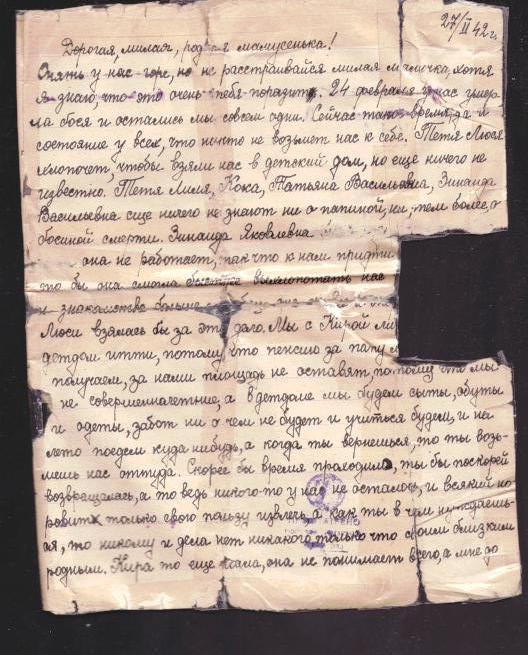 27/II 42 г.
Дорогая, милая, родная мамусенька!
Опять у нас горе, но не расстраивайся милая мамочка, хотя
я знаю, что это очень тебя поразит. 24 февраля у нас умер-
ла бося и остались мы совсем одни. Сейчас такое время, да и
состояние у всех, что никто не возьмет нас к себе. Тетя Люся
хлопочет, чтобы взяли нас в детский дом, но еще ничего не
известно. Тетя Миля, Кока, Татьяна Васильевна, Зинаида
Васильевна еще ничего не знают ни о папиной, ни, тем более, о
босиной смерти. Зинаида Яковлевна
она не работает, так что к нам придти
то бы она смогла быстрее выхлопотать нас
и знакомство больше
Люси взялась бы за это дело. Мы с Кирой
детдом итти, потому что пенсию за папу
получаем, за нами площадь не оставят, потому что мы
не совершеннолетние, а в детдоме мы будем сыты, обуты
и одеты, забот ни о чем не будет и учиться будем, и на
лето поедем куда нибудь, а когда ты вернешься, то ты возь-
мешь нас оттуда. Скорее бы время проходило, ты бы поскорей
возвращалась, а то ведь никого-то у нас не осталось, и всякий но-
ровит только свою пользу извлечь, а как ты в чем нуждаешь-
ся, то никому и дела нет никакого, только что своим близким
родным. Кира то еще мала, она не понимает всего, а мне до